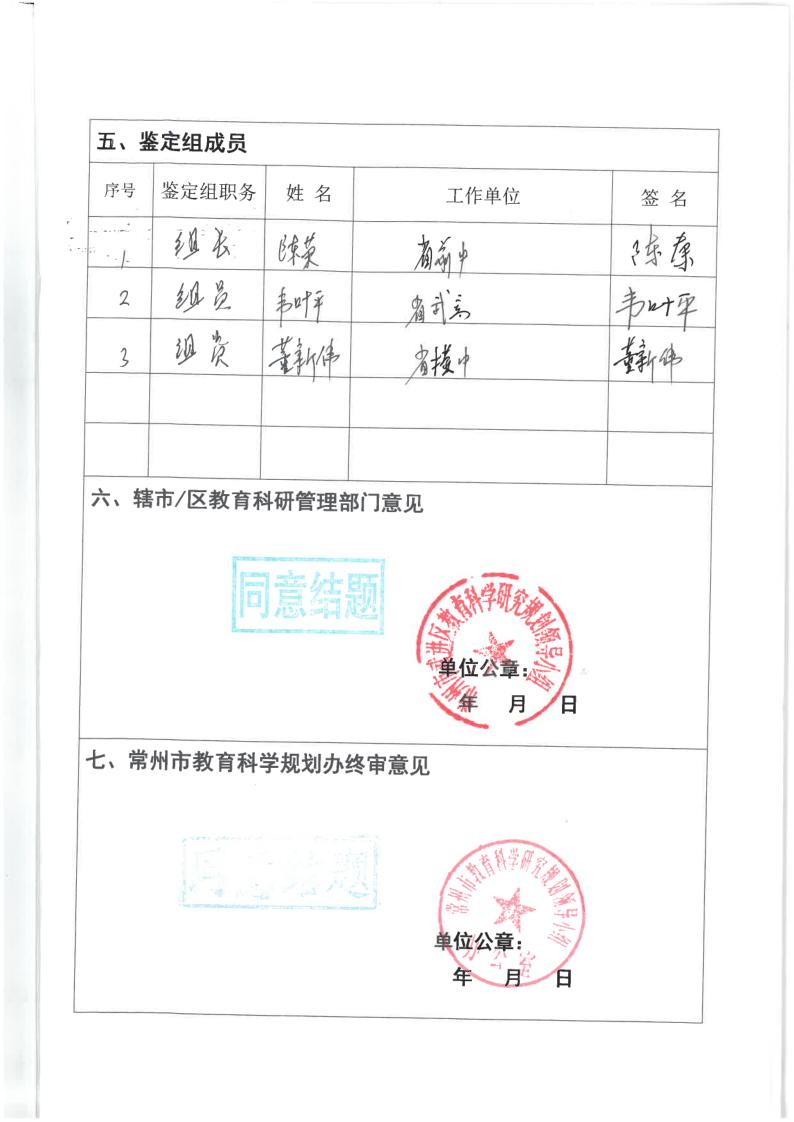 五、鉴定组成员
序号 鉴定组职务 姓 名 工作单位 签 名
1 组长 陈英 省前中
2 组员 韦叶平 省武高 韦叶平
3 组员 董新伟 省横中 董新伟
六、辖市/区教育科研管理部门意见
同意结题
常州市武进区教育科学研究规划领导小组
单位公章:
年 月 日
七、常州市教育科学规划办终审意见
同意结题
常州市教育科学研究规划领导小组
办公室
单位公章:
年 月 日